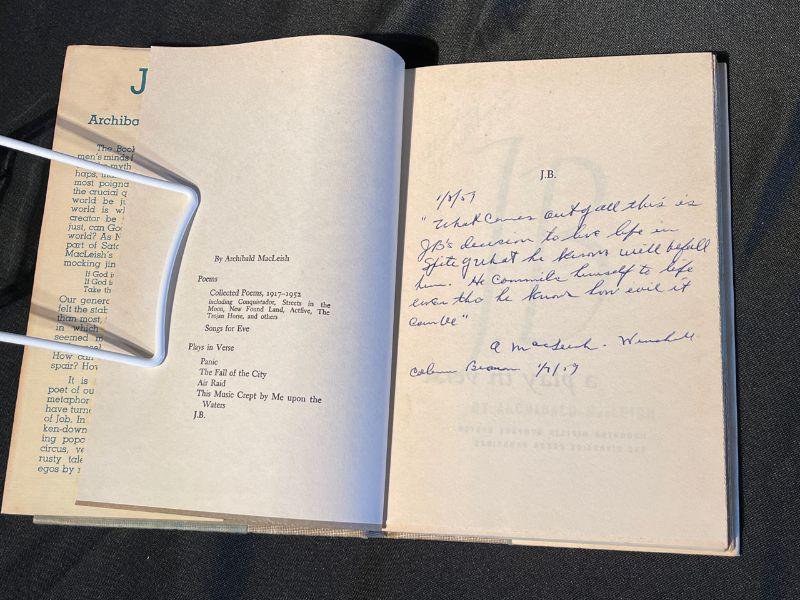 J
Archiba
The Book
men's minds
the myth
haps,
most poigna
the crucial q
world be ju
world is wh
creator be
just, can Go
world? As N
part of Sata
MacLeish's
mocking jin
If God i
If God i
Take th
Our genera
felt the stab
than most,
in which
seemed
How can
spair? How
It is
poet of ou
metaphor
have turne
of Job. In
ken-down
ing popc
circus, ve
rusty tale
egos by
By Archibald MacLeish
Poems
Collected Poems, 1917–1952
including Conquistador, Streets in the
Moon, New Found Land, Actfive, The
Trojan Horse, and others
Songs for Eve
Plays in Verse
Panic
The Fall of the City
Air Raid
This Music Crept by Me upon the
Waters
J.B.
J.B.
1/8/59
"What comes out of all this is
JB's decision to live life in
spite of what he knows will befall
him. He commits himself to life
even tho he knows how evil it
can be"
A MacLeish.
Brown 1/8/59
a play in verse
HOUGHTON MIFFLIN COMPANY BOSTON
THE RIVERSIDE PRESS CAMBRIDGE